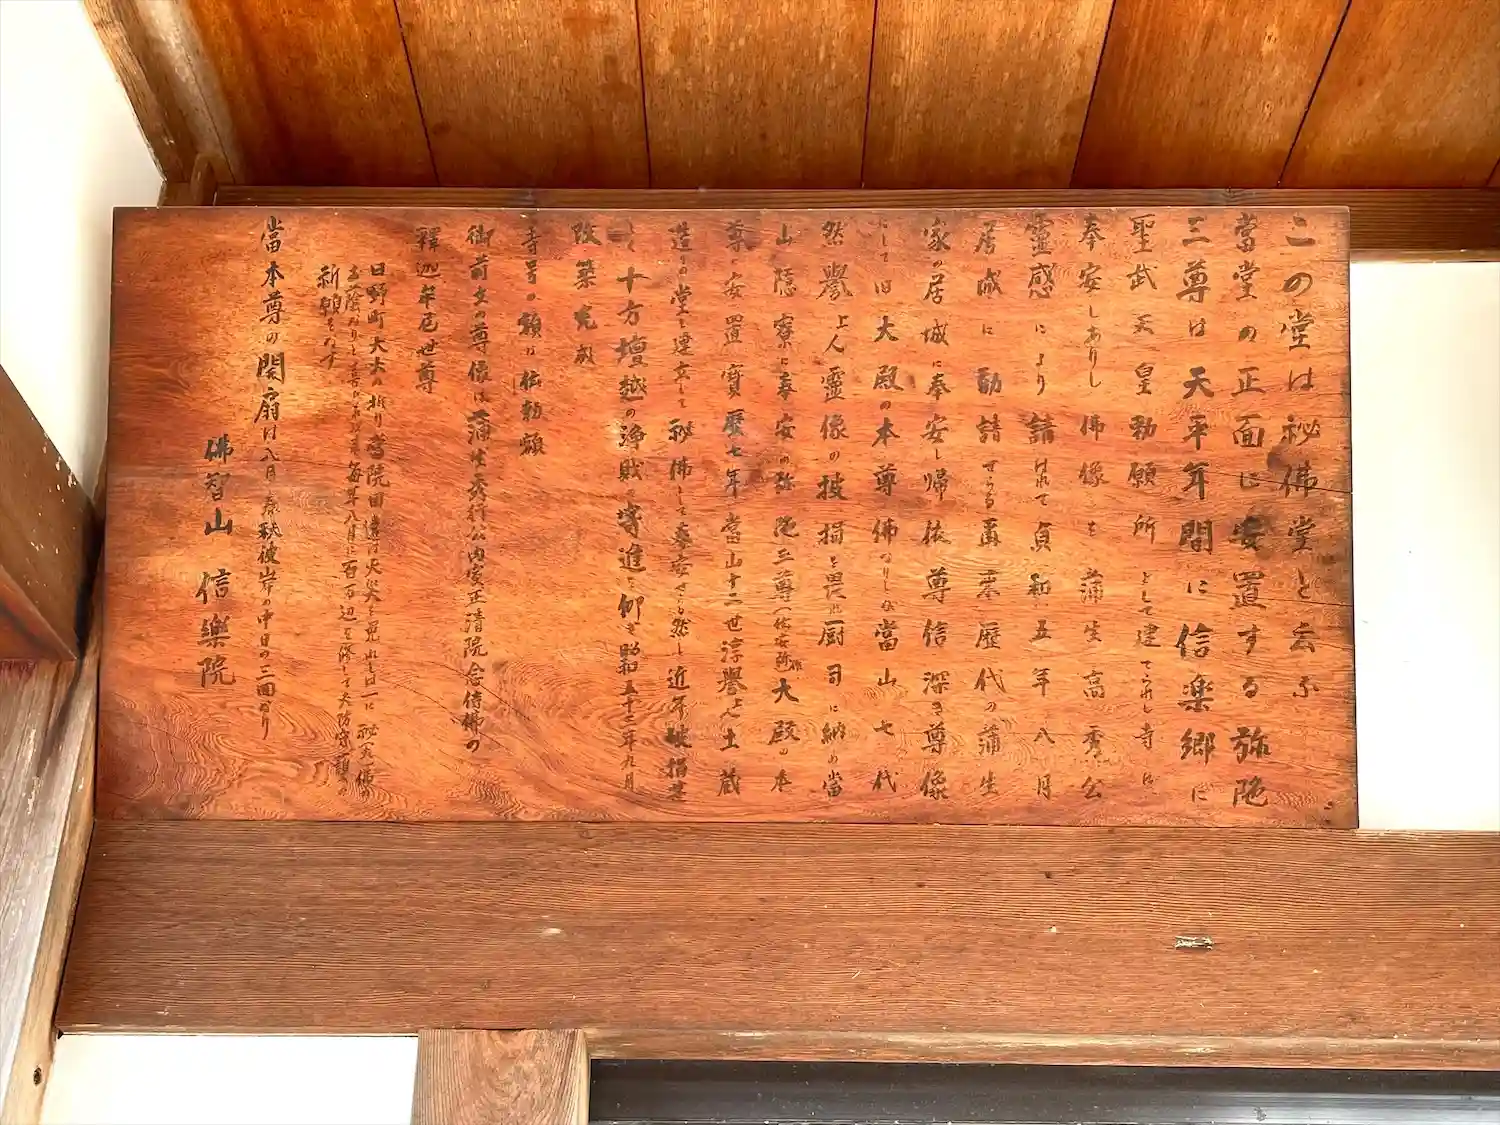 この堂は秘佛堂と云ふ
當堂の正面に安置する弥陀
三尊は天平年間に信楽郷に
聖武天皇勅願所として建てられし寺に
奉安しありし佛像を蒲生高秀公
霊感により請はれて貞和五年八月
居城に勧請せらる爾来歴代の蒲生
家の居城に奉安し帰依尊信深き尊像
にして旧大殿の本尊佛なりしが當山七代
然譽上人霊像の披損を畏れ厨司に納め當
山隠寮に奉安の弥陀三尊大殿の本
尊に安置寶暦七年當山十二世淳譽上人土蔵
造りの堂を建立して秘佛として奉安せらる然し近年破損甚
しく十方壇越の浄財の寄進を仰ぎ昭和五十二年九月
改築完成
寺号の額は伝勅額
御前立の尊像は蒲生氏郷公内室正清院念侍佛の
釋迦牟尼世尊
日野町大火の折り當院回遠は火災を免れしは一に秘宝佛の
お蔭なりと毎年八月に百万辺を修して火防守護の
祈願をなす
當本尊の開扇は八月春秋彼岸の中日の三回なり
佛智山 信樂院